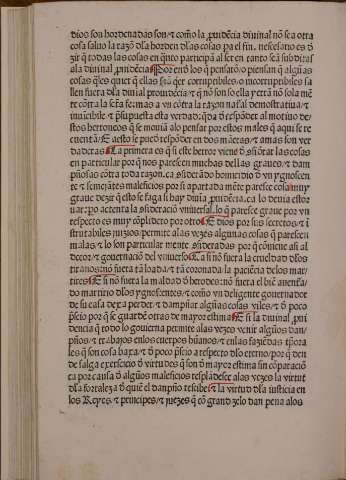 dios son hordenadas son/ ⁊ como la prouidēcia diuinal nō sea otra
cosa saluo la razō d̄la horden d̄las cosas pa el fin. nescesario es d̄
zir q̄ todas las cosas en q̄nto participā al ser en tanto seā subditas
ala diuinal prouidēcia Por ēnd los q̄ pensarō/o piensan q̄ algūas
cosas q̄les quier q̄ ellas seā q̄er corruptibiles/o incorruptibiles sa
len fuera d̄la diuinal prouidēcia/ ⁊ q̄ nō son so ella yerrā nō sola mē
te cōtra la sc̄a fe mas a vn cōtra la razon nr̄al demonstratiua/ ⁊
inuincibile ⁊ p̄supuesta esta verdad: q̄da d̄ respōder al motiuo de/
stos herroneos q̄ se mouiā alo pensar por estos males q̄ aqui se re
cuentā/ E aesto se puede respōder en dos māeras/ ⁊ amas son ver
daderas La primera es q̄ si este herror viene d̄ cōsiderar las cosas
en particular por q̄ nos paresen muchas dellas graues/ ⁊ dam
pñosas cōtra toda razon. ca cōsiderādo el homicidio d̄ vn ygnoscen
te ⁊ semejātes maleficios por si apartada mēte paresce cosa muy
graue dezir q̄ esto se faga si hay diuīa prouidēcia. ca lo deuia estor
uar: po acatenta la cōsideraciō vniuersal. lo q̄ paresce graue por vn
respecto es muy cōplidero por otro E dios por sus secretos/ ⁊ i
strutabiles juizios permite alas vezes algunas cosas que paresen
malas/ ⁊ lo son particular mente cōsideradas por q̄ cōuiene asi al
decor/ ⁊ gouernaciō del vniuerso E a si nō fuera la crueldad d̄los
tiranos: nō fuera tā loada/ ⁊ tā coronada la paciēcia delos mar/
tires E si nō fuera la maldad d̄ herodes: nō fuera el biē auenfa/
do martirio d̄los ygnoscentes/ ⁊ como vn deligente gouernador
de su casa dexa perder/ ⁊ dampñar algūas cosas viles/ ⁊ d̄ poco
p̄scio por q̄ se guardē otras de mayor estima E si la diuinal pro
uidencia q̄ todo lo gouierna permite alas vezes venir algūos dan/
pños/ ⁊ trabajos enlos cuerpos humanos/ ⁊ enlas faziēdas tpora
les q̄ son cosa baxa/ ⁊ d̄ poco p̄scio a respecto d̄lo eterno/ por q̄ den
de salga exerciscio d̄ virtudes q̄ son d̄ mayor estima sin cōparaciō
ca por causa d̄ algūos maleficios resplādesce alas vezes la virtut
d̄la fortaleza d̄ quiē el danpño rescibe/ ⁊ la virtud d̄la iusticia en
los Reyes/ ⁊ principes/ ⁊ juezes q̄ cō grand zelo dan pena alos